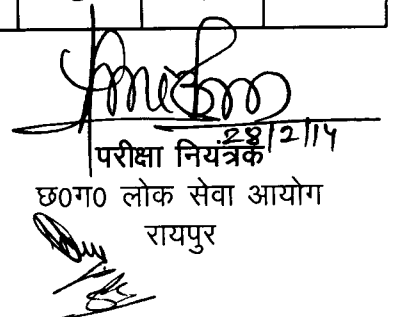 28/2/14
परीक्षा नियंत्रक
छ०ग० लोक सेवा आयोग
रायपुर